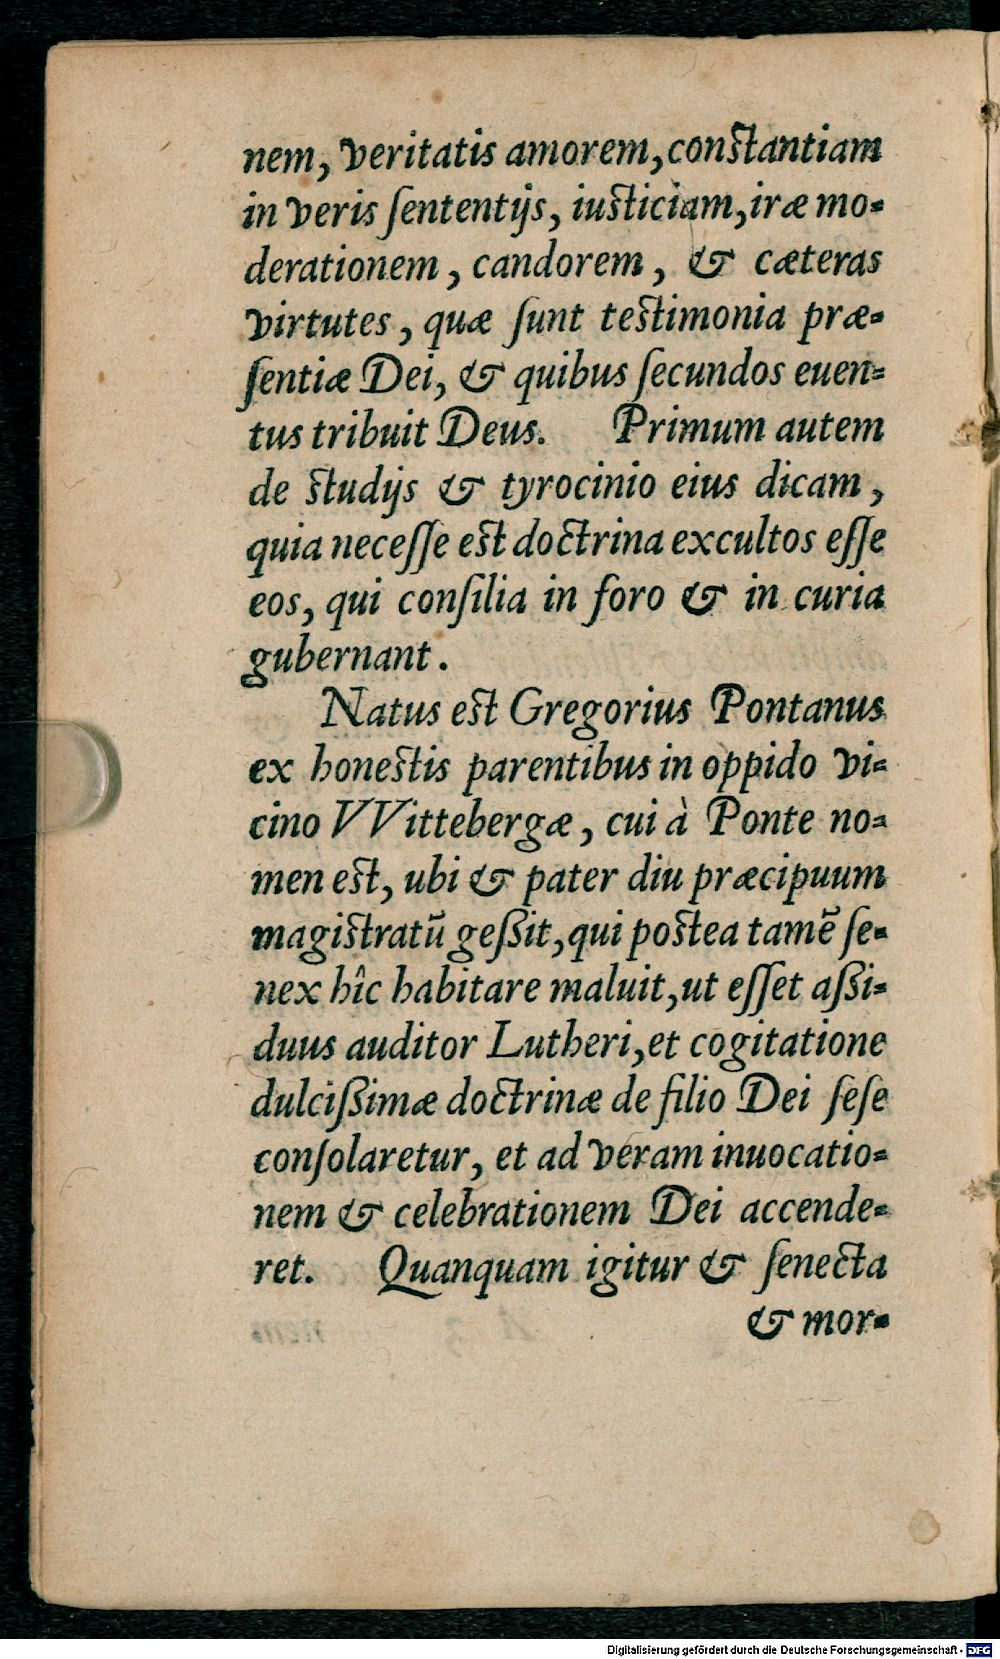 nem, veritatis amorem, conſtantiam
in veris ſententijs, iuſticiam, iræ mo-
derationem, candorem, & cæteras
virtutes, quæ ſunt teſtimonia præ-
ſentiæ Dei, & quibus ſecundos euen-
tus tribuit Deus. Primum autem
de ſtudijs & tyrocinio eius dicam,
quia neceſſe eſt doctrina excultos eſſe
eos, qui conſilia in foro & in curia
gubernant.
Natus eſt Gregorius Pontanus
ex honeſtis parentibus in oppido vi-
cino VVittebergæ, cui à Ponte no-
men eſt, ubi & pater diu præcipuum
magiſtratū geßit, qui poſtea tamē ſe-
nex hîc habitare maluit, ut eſſet aßi-
duus auditor Lutheri, et cogitatione
dulcißimæ doctrinæ de filio Dei ſeſe
conſolaretur, et ad veram inuocatio-
nem & celebrationem Dei accende-
ret. Quanquam igitur & ſenecta
& mor-
Digitalisierung gefördert durch die Deutsche Forschungsgemeinschaft - DFG